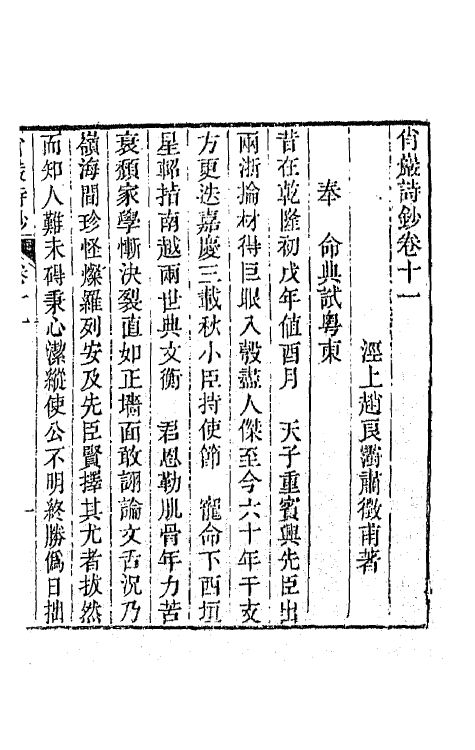 肖巖詩鈔卷十一
涇上趙良澍肅徵甫著
奉　命典試粵東
昔在乾隆初戊年值酉月　天子重賓興先臣出
兩浙掄材得巨眼入彀盡人傑至今六十年干支
方更迭嘉慶三載秋小臣持使節　寵命下西垣
星軺指南越兩世典文衡　君恩勒肌骨年力苦
衰頹家學慚決裂直如正墻面敢詡論文舌況乃
嶺海間珍怪燦羅列安及先臣賢擇其尤者拔然
而知人難未碍秉心潔縱使公不明終勝偽日拙